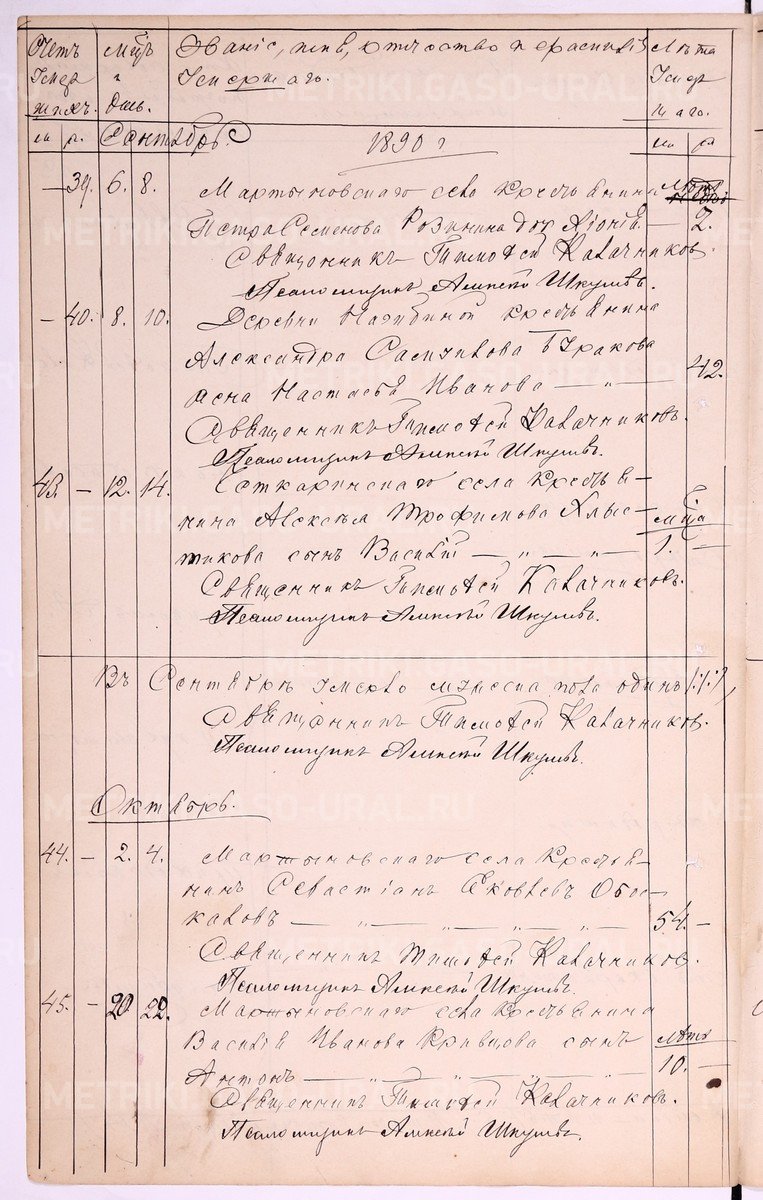 Счетъ Мѣцъ Званіе, имя, отчество и фамилія Лѣта
Умер и Умершаго. Умер
шихъ. день. шаго.
м ж Сентябрь. 1890 г м ж
— 39. 6. 8. Мартыновскаго села крестьянина Лѣта
Петра Семенова дочь — 2.
Священникъ Тимоѳей Калачниковъ.
Псаломщикъ Алексѣй Шкулевъ.
— 40. 8. 10. Деревни крестьянина
Александра Буракова
жена Настасья Иванова — „ — 42.
Священникъ Тимоѳей Калачниковъ.
Псаломщикъ Алексѣй Шкулевъ.
43. — 12. 14. села крестья-
нина Алексѣя Трофимова Хлыс- мѣца
тикова сынъ Василій — „ — „ — 1. —
Священникъ Тимоѳей Калачниковъ.
Псаломщикъ Алексѣй Шкулевъ.
Въ Сентябрѣ умерло мужеска пола одинъ /:1:/,
Священникъ Тимоѳей Калачниковъ.
Псаломщикъ Алексѣй Шкулевъ.
Октябрь.
44. — 2. 4. Мартыновскаго села крестья-
нинъ Севастіанъ Яковлевъ Обос-
каловъ — „ — „ — „ — „ — 54. —
Священникъ Тимоѳей Калачниковъ.
Псаломщикъ Алексѣй Шкулевъ.
45. — 20 22. Мартыновскаго села крестьянина
Василія Иванова Кривцова сынъ Лѣтъ
Антонъ — „ — „ — „ — „ — 10. —
Священникъ Тимоѳей Калачниковъ.
Псаломщикъ Алексѣй Шкулевъ.
METRIKI.GASO-URAL.RU